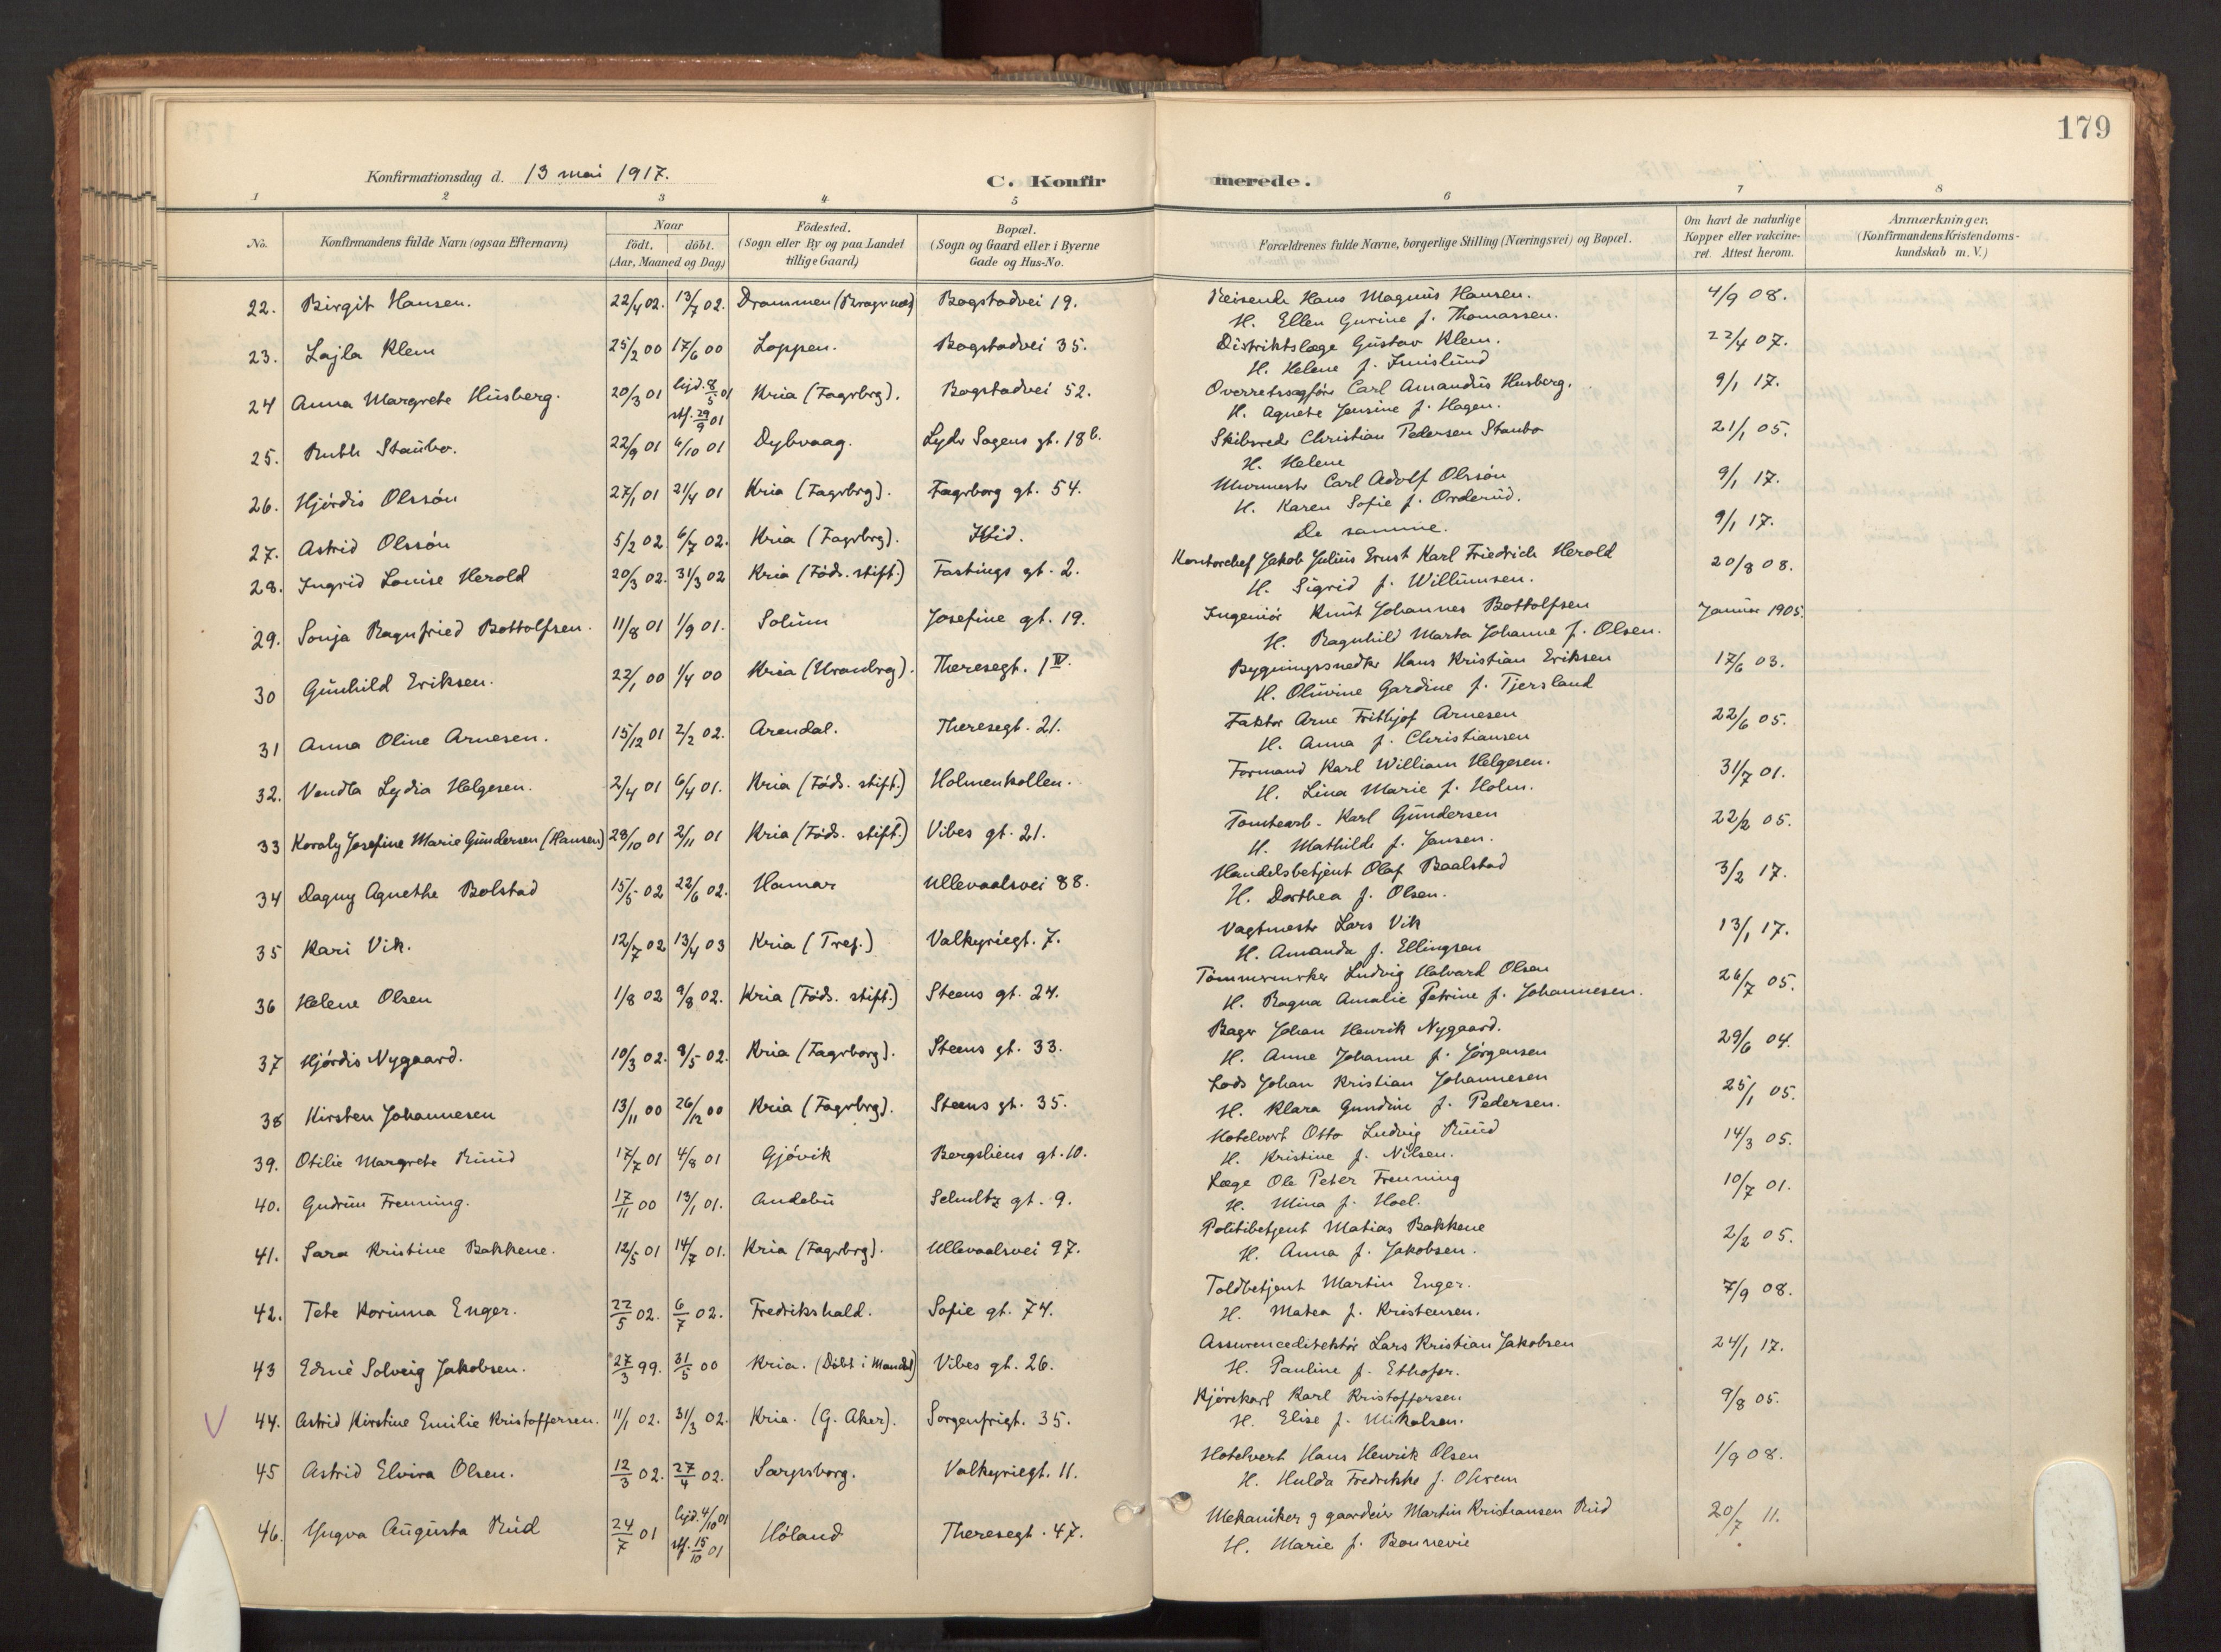 179
Konfirmationsdag d. 13 mai 1917.
C. Konfirmerede.
1 2 3 4 5 6 7 8
No. | Konfirmandens fulde Navn (ogsaa Efternavn) | Naar födt. | döbt. (Aar, Maaned og Dag) | Födested. (Sogn eller By og paa Landet tillige Gaard) | Bopæl. (Sogn og Gaard eller i Byerne Gade og Hus-No. | Forældrenes fulde Navne, borgerlige Stilling (Næringsvei) og Bopæl. | Om havt de naturlige Kopper eller vakcineret. Attest herom. | Anmærkninger. (Konfirmandens Kristendomskundskab m. V.)
22. Birgit Hansen. 22/4 02. 13/7 02. Drammen (Bragernæs) Bogstadvei 19. Reisende Hans Magnus Hansen. 4/9 08.
H. Ellen Gurine f. Thomassen.
23. Lajla Klem 25/2 00 17/6 00 Loppen. Bogstadvei 35. Distriktslæge Gustav Klem. 22/4 07.
H. Helene f.
24 Anna Margrete Husberg. 20/3 01 hjd. 8/5 01 stf. 29/9 01 Kria (Fagrbrg). Bogstadvei 52. Overretssagfører Carl Amandus Husberg. 9/1 17.
H. Agnete Jensine f. Hagen.
25. Ruth Staubo. 22/9 01 6/10 01 Dybvaag. Lyder Sagens gt. 18 b. Skibsreder Christian Pedersen Staubo 21/1 05.
H. Helene
26. Hjördis Olssön 27/1 01 21/4 01 Kria (Fagrbrg). Fagerborg gt. 54. Murmester Carl Adolf Olssön 9/1 17.
H. Karen Sofie f. Orderud.
27. Astrid Olssön 5/2 02 6/7 02. Kria (Fagrbrg). Ibid. De samme. 9/1 17.
28. Ingrid Louise Herold 20/3 02. 31/3 02 Kria (Föds. stift.) Fastings gt. 2. Kontorchef Jakob Julius Ernst Karl Friedrich Herold 20/8 08.
H. Sigrid f. Willumsen.
29. Sonja Ragnfried Bottolfsen. 11/8 01 1/9 01. Solum Josefine gt. 19. Ingeniör Knut Johannes Bottolfsen Januar 1905.
H. Ragnhild Marta Johanne f. Olsen.
30 Gunhild Eriksen. 22/1 00 1/4 00 Kria (Uranbrg). Theresegt. 1 IV. Bygningssnedker Hans Kristian Eriksen 17/6 03.
H. Oluvine Gardine f. Tjersland
31 Anna Oline Arnesen. 15/12 01 2/2 02. Arendal. Theresegt. 21. Faktor Arne Frithjof Arnesen 22/6 05.
H. Anna f. Christiansen
32. Vendla Lydia Helgesen. 2/4 01 6/4 01. Kria (Föds. stift.) Holmenkollen. Formand Karl William Helgesen. 31/7 01.
H. Lina Marie f. Holm.
33 Koraly Josefine Marie Gundersen (Hansen) 28/10 01 2/11 01 Kria (Föds. stift.) Vibes gt. 21. Tomtearb. Karl Gundersen 22/2 05.
H. Mathilde f. Jensen.
34 Dagny Agnethe Bolstad 15/5 02 22/6 02. Hamar Ullevaalsvei 88. Handelsbetjent Olaf Baalstad 3/2 17.
H. Dorthea f. Olsen.
35 Kari Vik. 12/7 02 13/4 03 Kria (Tref.) Valkyriegt. 7. Vagtmester Lars Vik 13/1 17.
H. Amanda f. Ellingsen
36 Helene Olsen 1/8 02 9/8 02. Kria (Föds. stift.) Steens gt. 24. Tömmermerker Ludvig Halvard Olsen 26/7 05.
H. Ragna Amalie Petrine f. Johannesen.
37 Hjördis Nygaard. 10/3 02. 8/5 02. Kria (Fagrborg). Steens gt. 33. Bager Johan Henrik Nygaard. 29/6 04.
H. Anne Johanne f. Jörgensen
38 Kirsten Johannesen 13/11 00 26/12 00 Kria (Fagrbrg). Steens gt. 35. Lods Johan Kristian Johannesen 25/1 05.
H. Klara Gundine f. Pedersen.
39. Otilie Margrete Ruud 17/7 01 4/8 01 Gjövik Bergsliens gt. 10. Hotelvert Otto Ludvig Ruud 14/3 05.
H. Kristine f. Nilsen.
40. Gudrun Frenning. 17/11 00 13/1 01. Andebu Schultz gt. 9. Læge Ole Peter Frenning 10/7 01.
H. Mina f. Hoel.
41. Sara Kristine Bakkene. 12/5 01 14/7 01. Kria (Fagrbrg). Ullevaalsvei 97. Politibetjent Matias Bakkene 2/2 05.
H. Anna f. Jakobsen.
42. Tete Korinna Enger. 22/5 02. 6/7 02. Fredrikshald. Sofie gt. 74. Toldbetjent Martin Enger. 7/9 08.
H. Matea f. Kristensen.
43 Edmè Solveig Jakobsen. 27/3 99. 31/5 00 Kria. (Döbt i Mandal) Vibes gt. 26. Assurencedirektör Lars Kristian Jakobsen 24/1 17.
H. Pauline f.
V 44. Astrid Kirstine Emilie Kristoffersen. 11/1 02. 31/3 02. Kria. (G. Aker). Sorgenfrigt. 35. Kjörekarl Karl Kristoffersen 9/8 05.
H. Elise f. Mikalsen.
45 Astrid Elvira Olsen. 12/3 02. 27/4 02. Sarpsborg. Valkyriegt. 11. Hotelvert Hans Henrik Olsen 1/9 08.
H. Hulda Fredrikke f.
46. Yngva Augusta Rud 24/7 01 hjd. 4/10 01 stf. 15/10 01 Höland Theresegt. 47. Mekaniker g gaardeier Martin Kristiansen Rud 20/7 11.
H. Marie f. Bonnevie